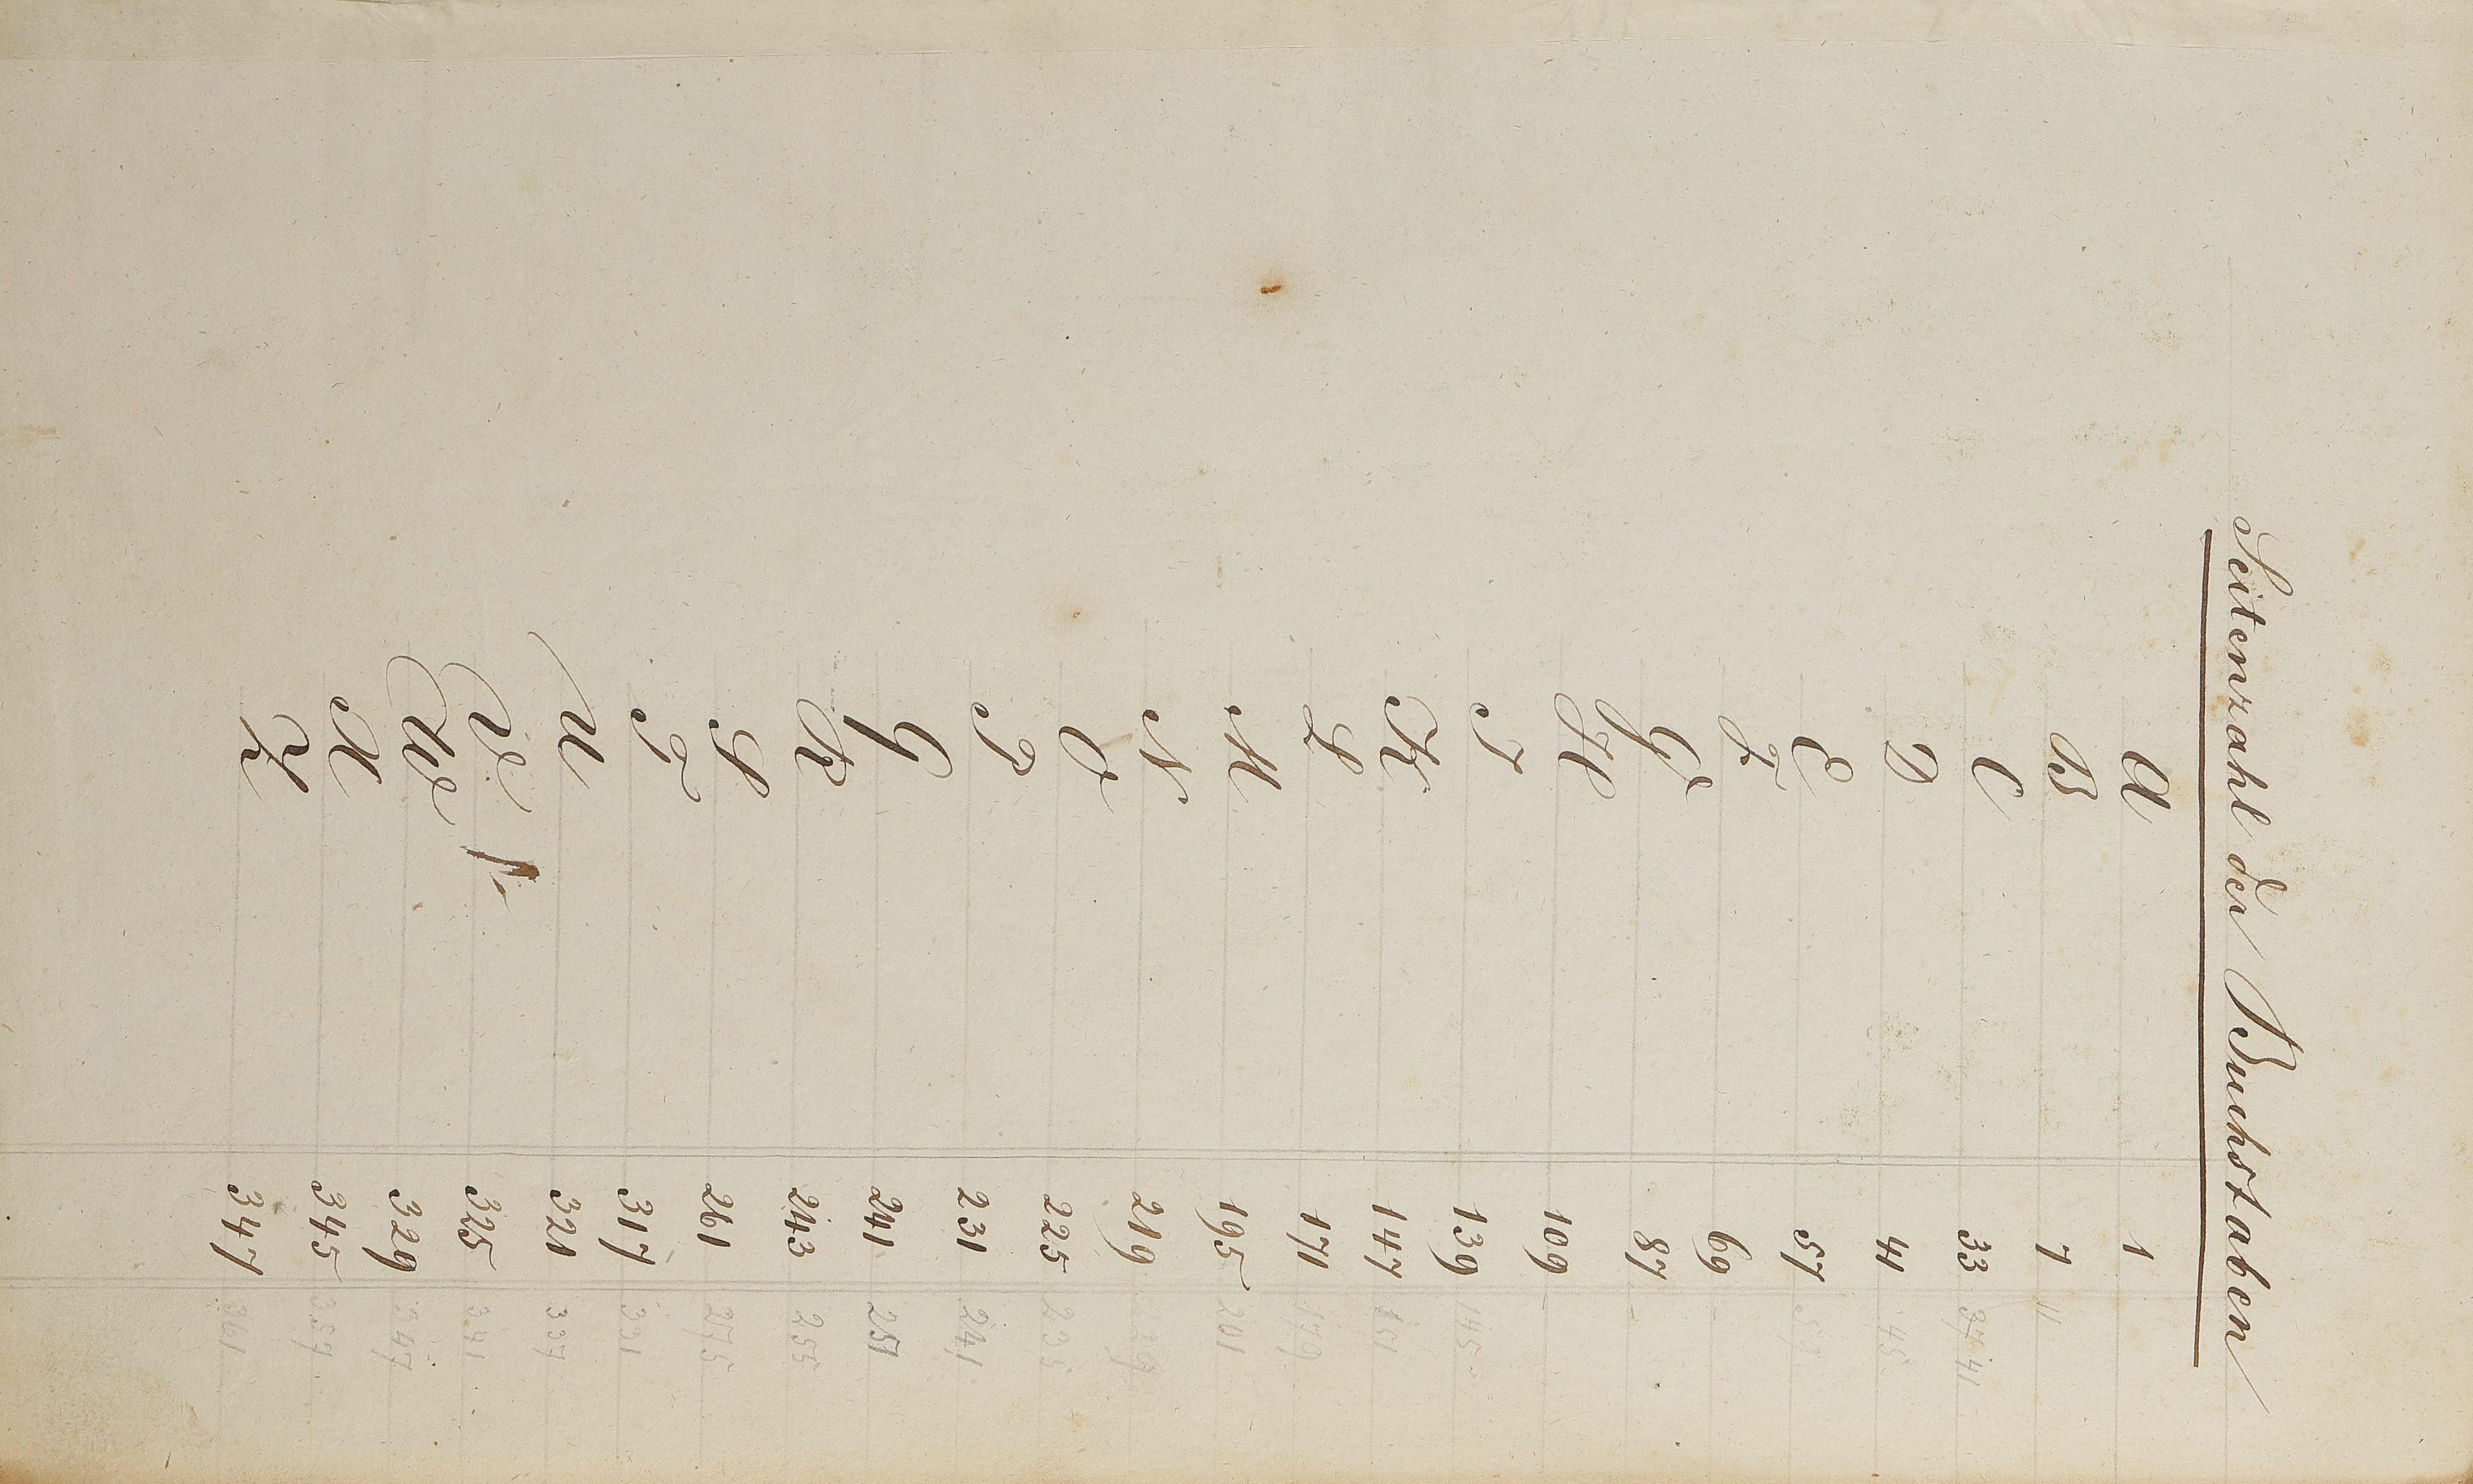 Seitenzahl der Buchstaben
A 1
B 7 11
C 33 37 41
D 41 45
E 57 57
F 69
G 87
H 109
I 139 145
K 147 151
L 171 179
M 195 201
N 219
O 225 235
P 231 241
Q 241 251
R 243 255
S 261 275
T 317 331
U 321 337
V 325 341
W 329 347
X 345 357
Z 347 361